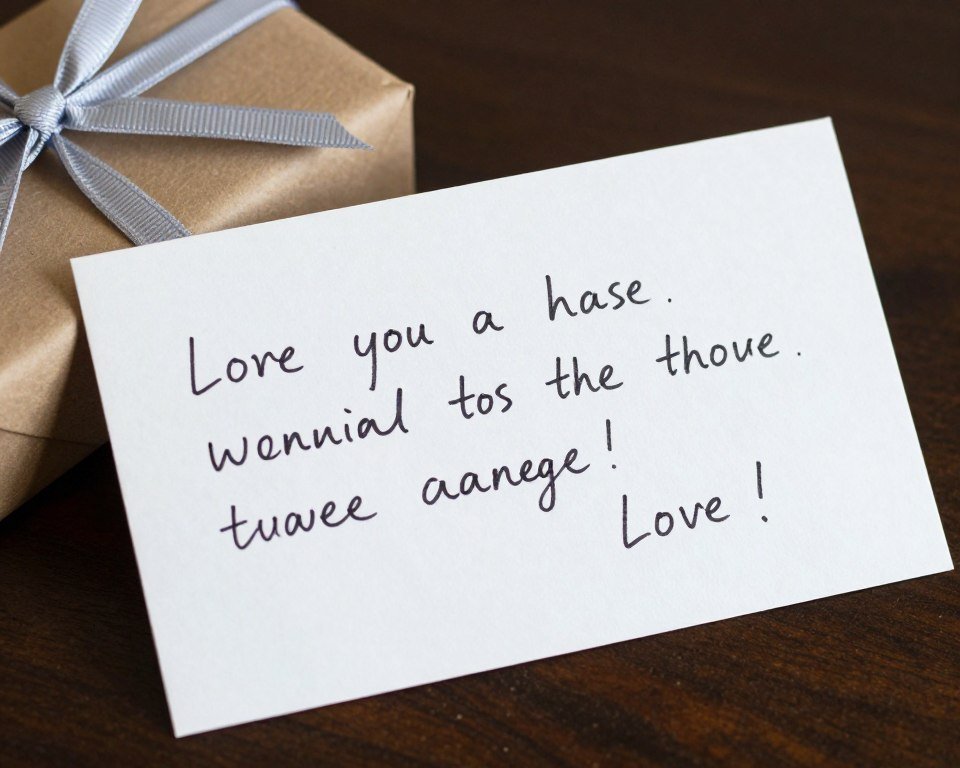 Love you a hase.
wennial tos the thoue.
tuavee aanege!
Love!